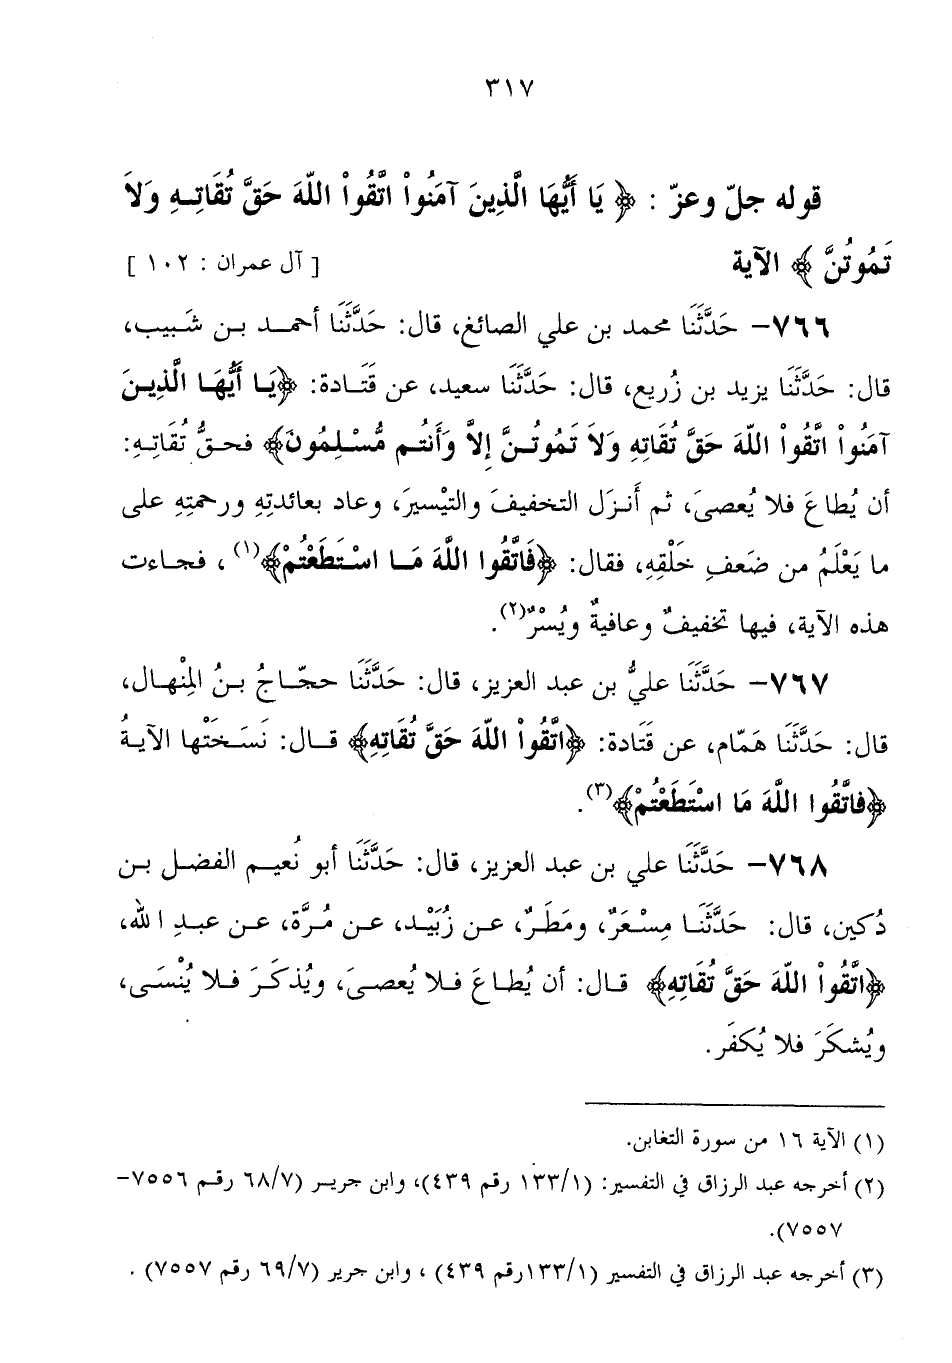 ٣١٧
قوله جلّ وعزّ : ﴿ يَا أَيُّهَا الَّذِينَ آمَنُواْ اتَّقُواْ اللّهَ حَقَّ تُقَاتِـهِ وَلاَ
تَمُوتُنَّ ﴾ الآية [ آل عمران : ١٠٢ ]
٧٦٦– حَدَّثَنَا محمد بن علي الصائغ، قال: حَدَّثَنَا أحمـد بـن شَبيب،
قال: حَدَّثَنَا يزيد بن زُريع، قال: حَدَّثَنَا سعيد، عن قَتَـادة: ﴿يَـا أَيُّهَـا الَّذِيـنَ
آمَنُواْ اتَّقُواْ اللّهَ حَقَّ تُقَاتِهِ وَلاَ تَمُوتُـنَّ إِلاَّ وَأَنتُـم مُّسْـلِمُونَ﴾ فحـقُّ تُقَاتِـهِ:
أن يُطاعَ فلا يُعصىَ، ثم أنـزَل التخفيفَ والتيْسيرَ، وعاد بعائدتِهِ ورحمتِهِ على
ما يَعْلَمُ من ضَعفِ خَلْقِهِ، فقال: ﴿فَاتَّقُوا اللَّهَ مَـا اسْـتَطَعْتُمْ﴾(١) ، فجـاءت
هذه الآية، فيها تخفيفٌ وعافيةٌ ويُسْرٌ(٢).
٧٦٧– حَدَّثَنَا عليُّ بن عبد العزيز، قال: حَدَّثَنَا حجّـاجُ بـنُ المِنْهـال،
قال: حَدَّثَنَا هَمّام، عن قَتَادة: ﴿اتَّقُواْ اللّهَ حَقَّ تُقَاتِهِ﴾ قـال: نَسَـخَتْها الآيـةُ
﴿فَاتَّقُوا اللَّهَ مَا اسْتَطَعْتُمْ﴾(٣).
٧٦٨– حَدَّثَنَا علي بن عبد العزيز، قال: حَدَّثَنَا أبو نُعيـم الفضـل بـن
دُكين، قال: حَدَّثَنَـا مِسْـعَرٌ، ومَطَـرٌ، عـن زُبَيْـد، عـن مُـرَّة، عـن عبـدِ الله،
﴿اتَّقُواْ اللّهَ حَقَّ تُقَاتِهِ﴾ قـال: أن يُطـاعَ فـلا يُعصىَ، ويُذكَـرَ فـلا يُنْسَـى،
ويُشكَرَ فلا يُكفَر.
(١) الآية ١٦ من سورة التغابن.
(٢) أخرجه عبد الرزاق في التفسير: (١/١٣٣ رقم ٤٣٩)، وابن جريـر (٦٨/٧ رقـم ٧٥٥٦–
٧٥٥٧).
(٣) أخرجه عبد الرزاق في التفسير (١/١٣٣رقم ٤٣٩) ، وابن جرير (٦٩/٧ رقم ٧٥٥٧) .